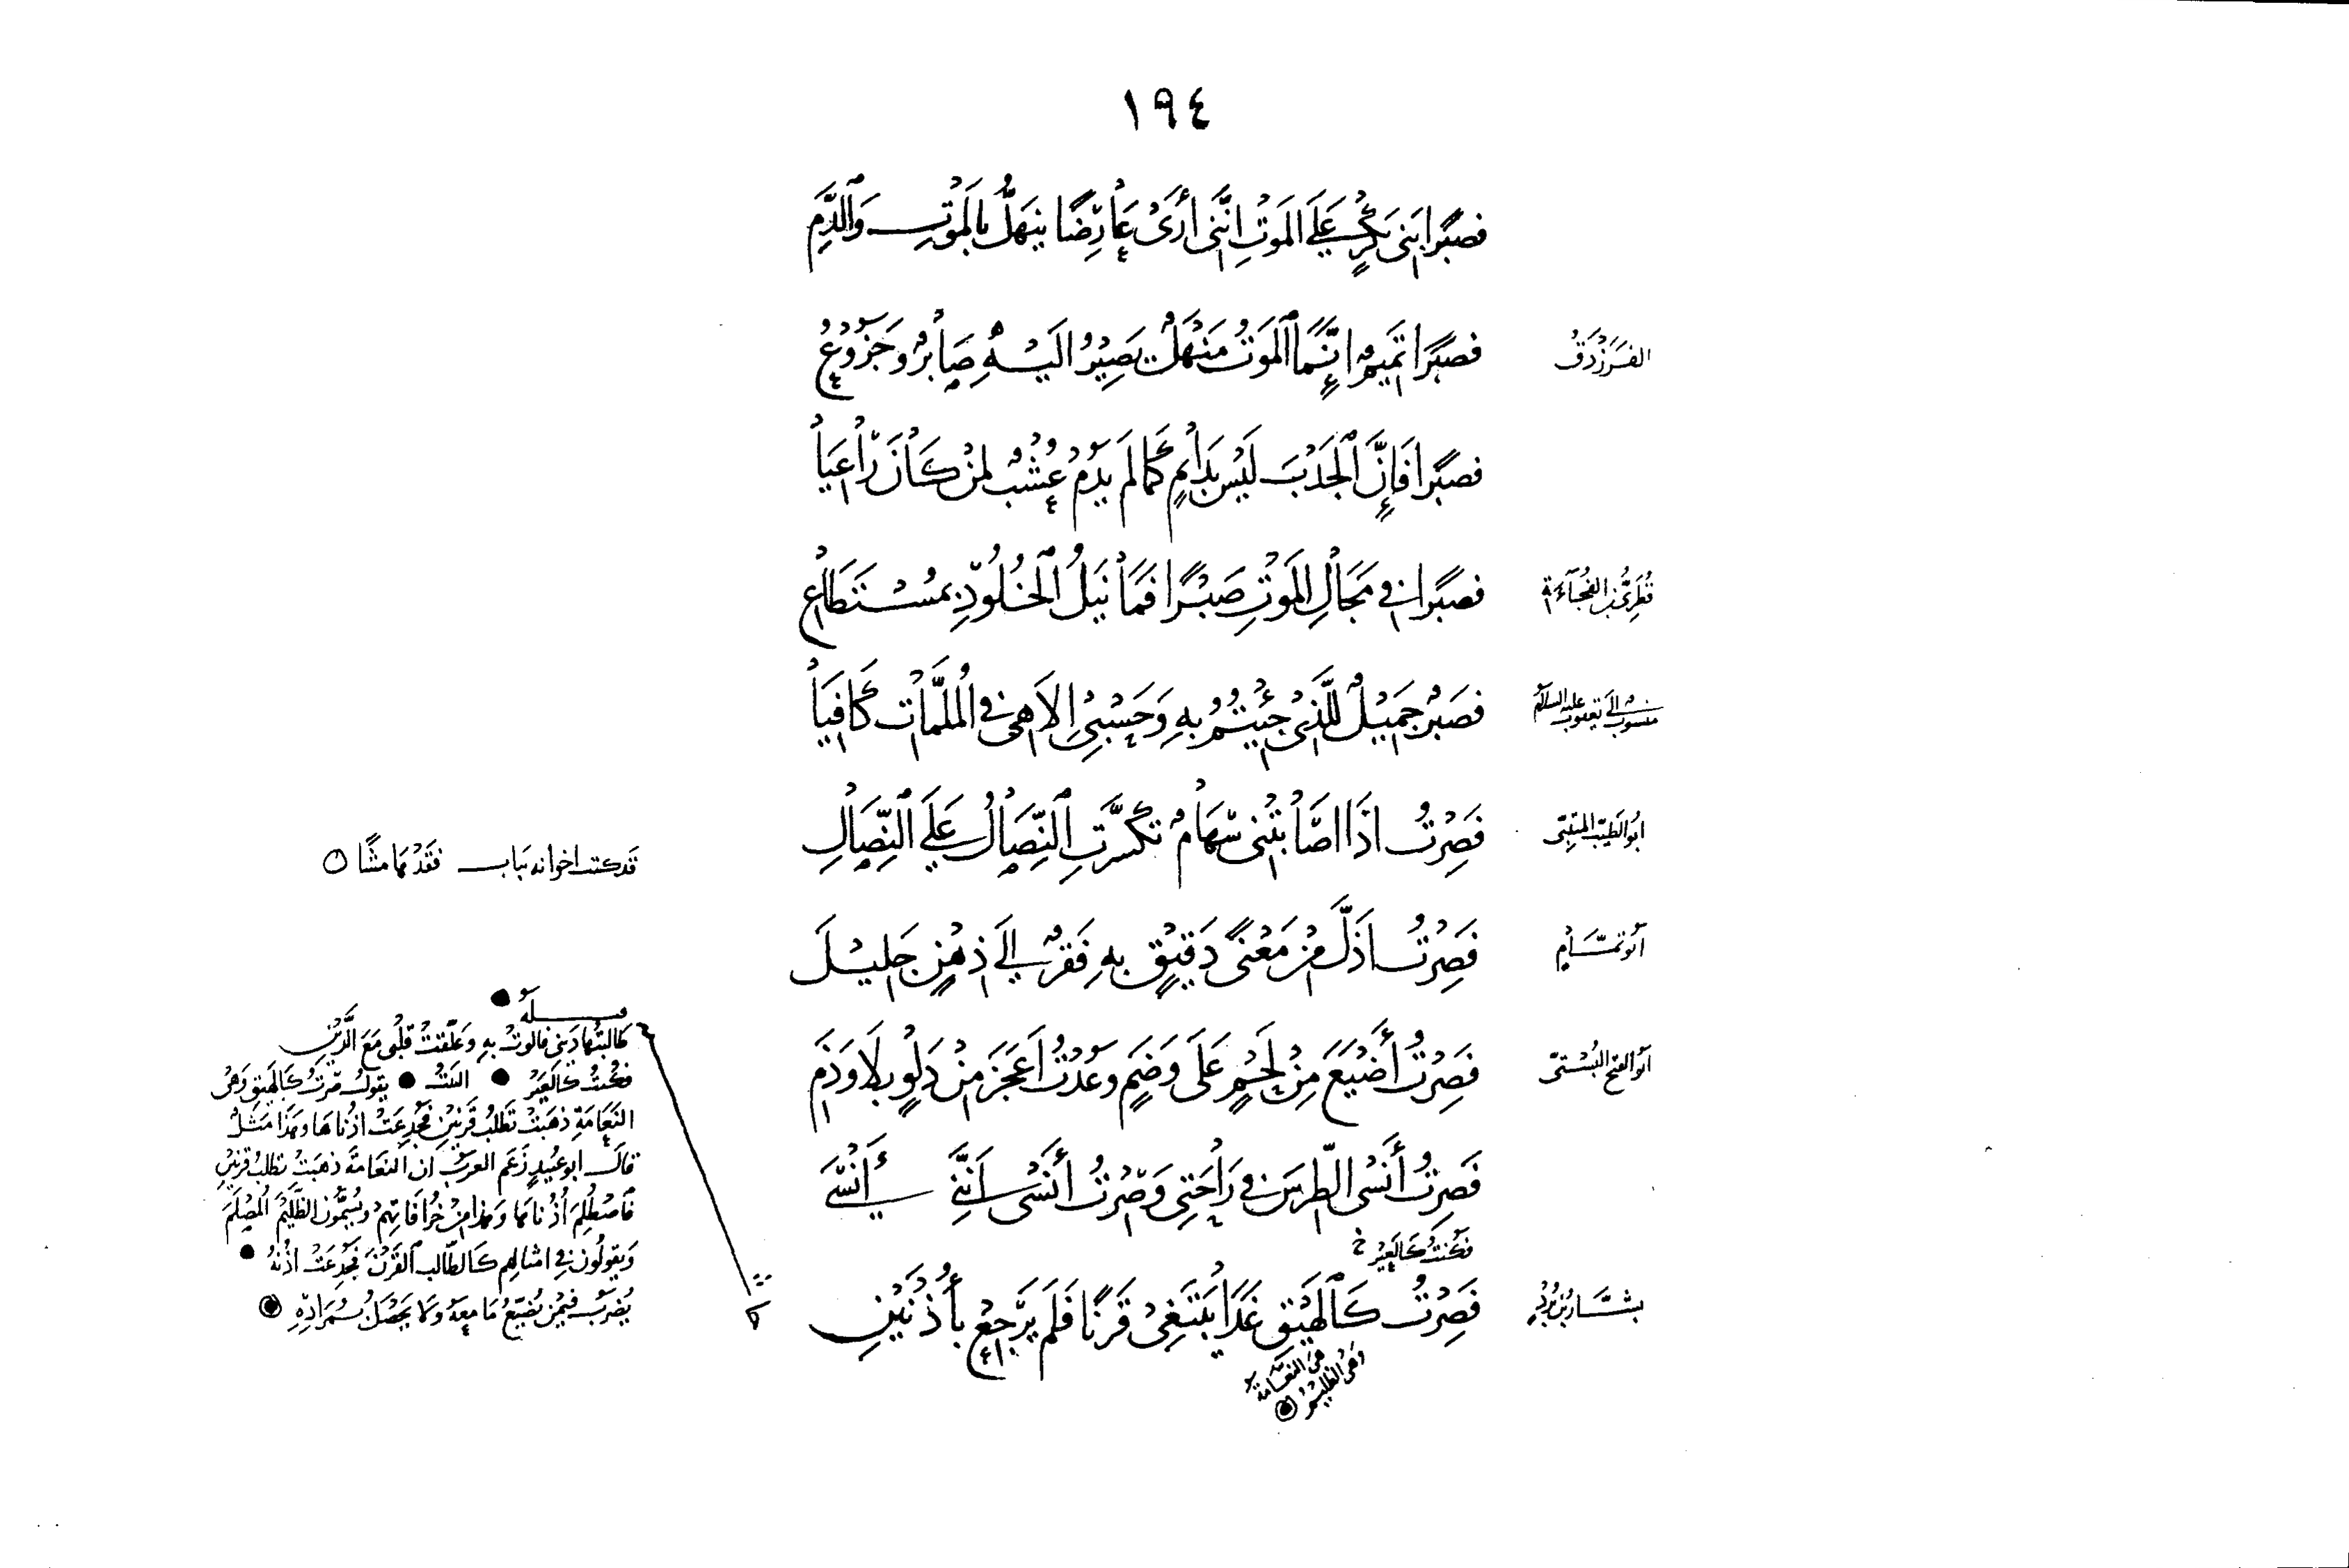 ١٩٤
فصبرًا بنى بكرٍ على الموتِ انّنى أرى عارضًا ينهلُّ بالموتِ والدَّمِ
الفرزدق
فصبرًا تميمٌ إنّما الموتُ منهلٌ يصيرُ اليهِ صابرٌ وجزوعُ
فصبرًا فإنَّ الجدبَ ليس بدائمٍ كما لم يدم عشبٌ لمن كان راعيا
قطرى بن الفجاءة
فصبرًا فى مجالِ الموتِ صبرًا فما نيلُ الخلودِ بمستطاعِ
منسوب الى يعقوب عليه السلام
فصبرٌ جميلٌ للذى جئتمُ بهِ وحسبى الاهى فى الملمّات كافيا
ابو الطيب المتنبى
فصرتُ اذا اصابتنى سهامٌ تكسّرتِ النّصالُ على النّصالِ
قد كتب اخوانه بباب فقدها مشًا
ابو تمّام
فصرتُ اذلَّ من معنًى دقيقٍ بهِ فقرٌ الى ذهنٍ جليلِ
ابو الفتح البستى
فصرتُ أضيعَ من لحمٍ على وضمٍ وعدتُ اعجزَ من دلوٍ بلا وذمِ
فصرتُ أنسى الطّرسَ فى راحتى وصرتُ أنسى انّنى أنسى
فكنتُ كالعير خ
بشّار بن برد
فصرتُ كالهيقِ غدا يبتغى قرنًا فلم يرجع بأذنينِ
هى النعامة
وهى الظليم
قبله
طالبتها دينى فالوت به وعلّقت قلبى مع الدّين
فكنتُ كالعير البيت يقول صرت كالهيق وهى
النّعامة ذهبت تطلب قرنين فجدعت اذناها وهذا مثل
قال ابو عبيد زعم العرب ان النعامة ذهبت تطلب قرنين
فاصطلم أذناها وهذا من خرافاتهم ويسمّون الظّليم المصلّم
ويقولون فى امثالهم كالطّالب القرن فجدعت اذنه
يضرب فيمن يضيّع ما معه ولا يحصل مرادّه